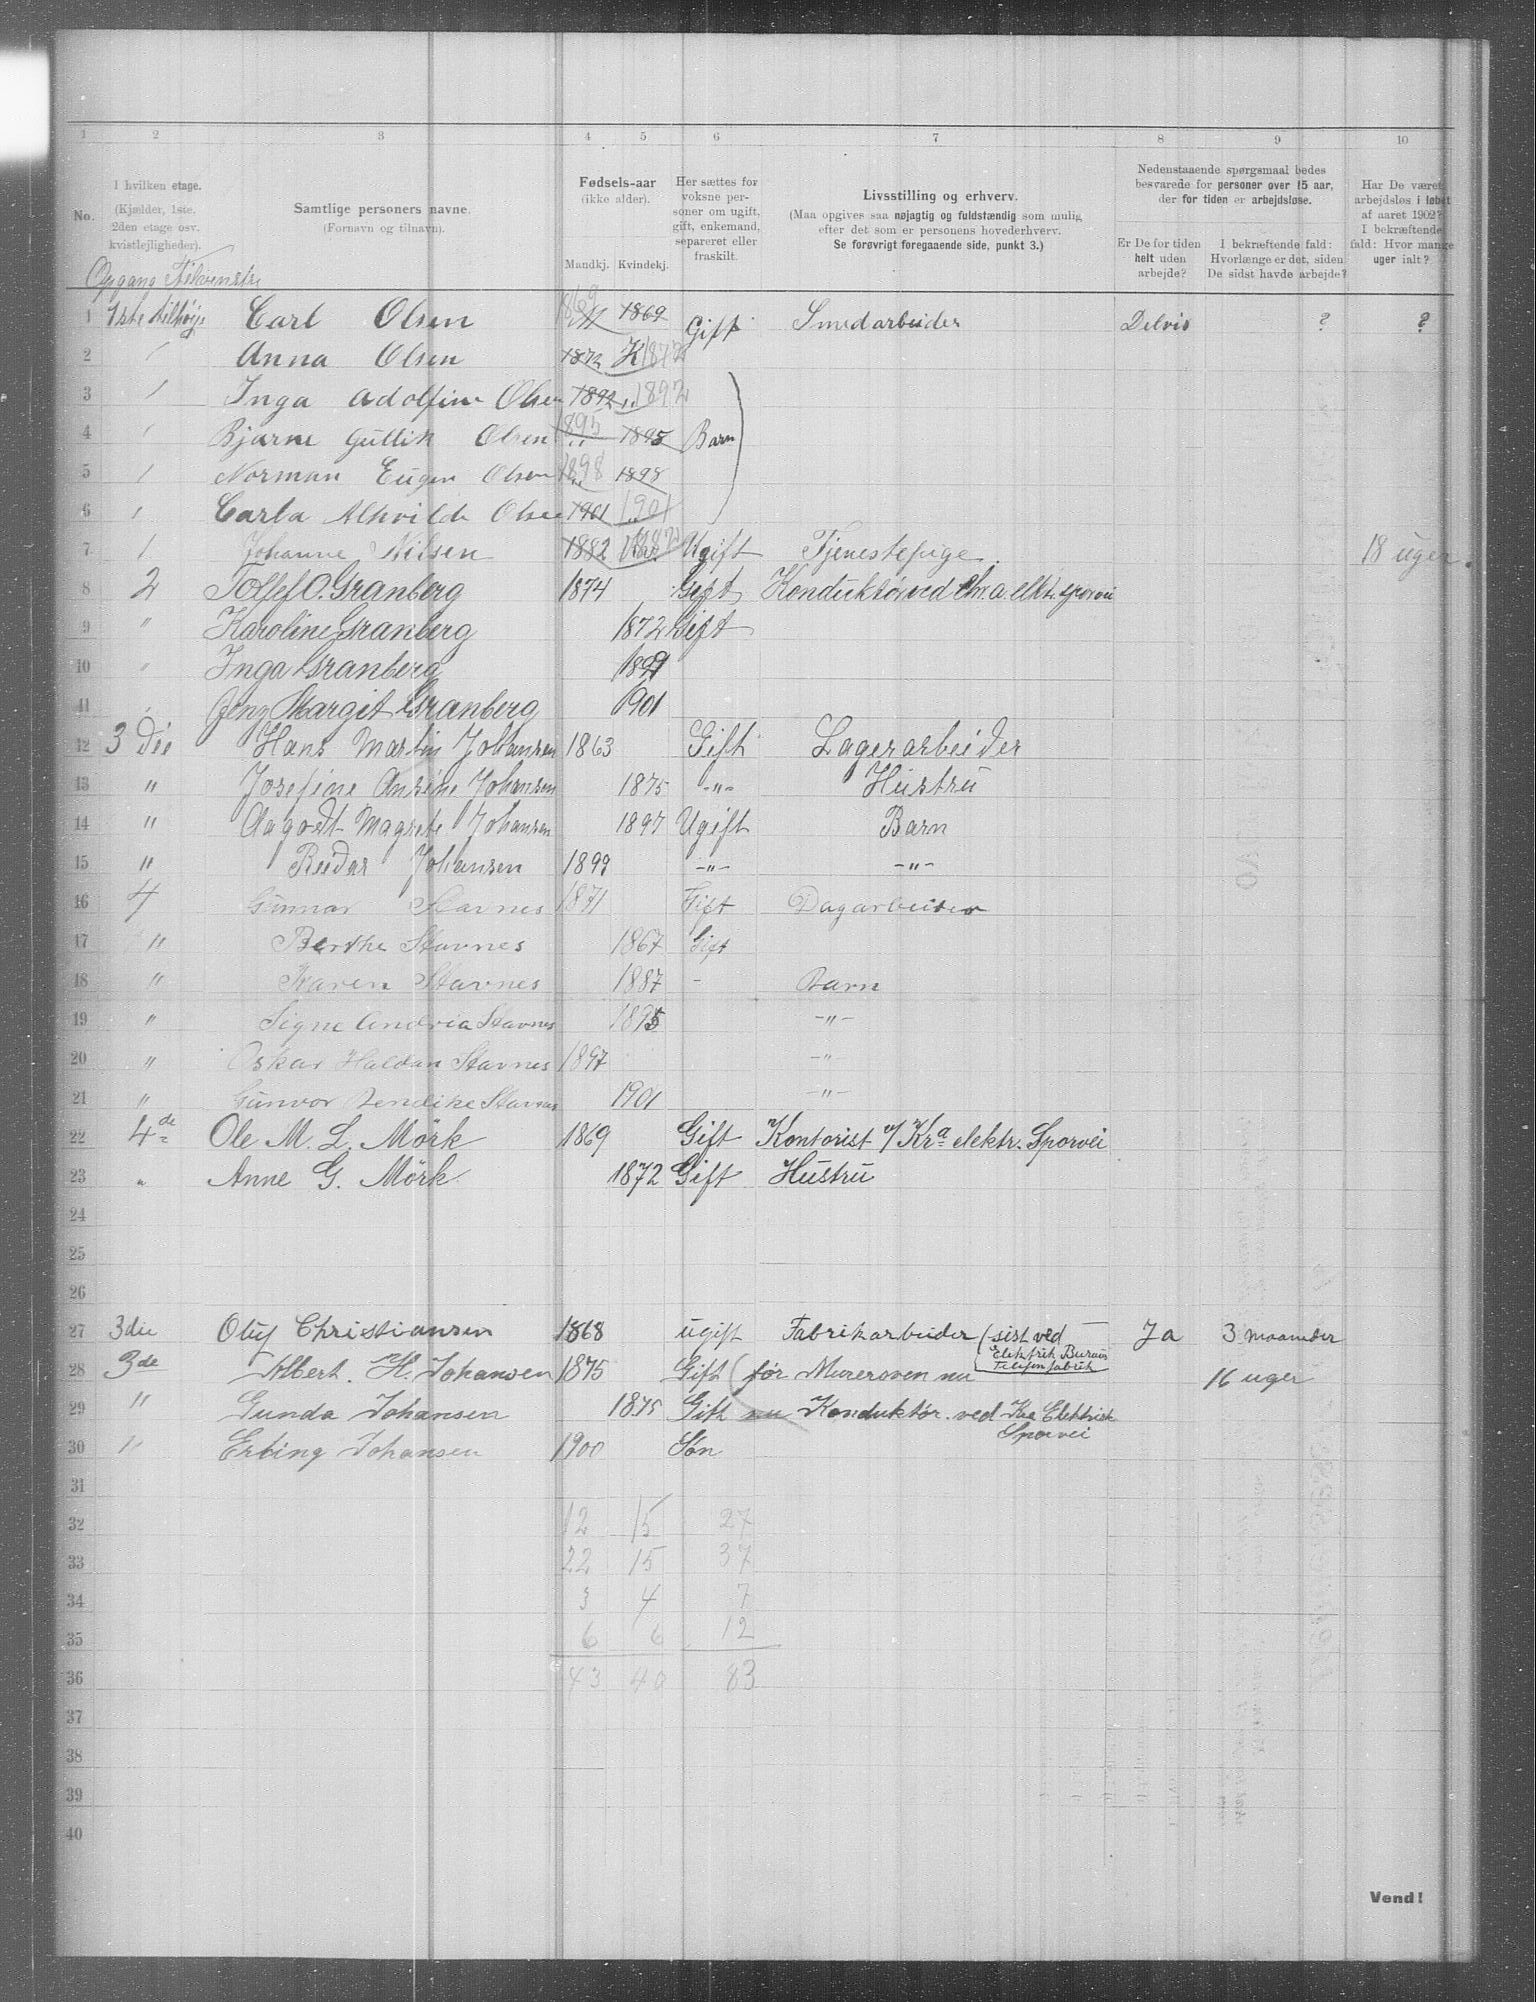 1 2 3 4 5 6 7 8 9 10
No.
I hvilken etage.
(Kjælder, 1ste. 2den etage osv. kvistlejligheder).
Samtlige personers navne.
(Fornavn og tilnavn).
Fødsels-aar
(ikke alder).
Mandkj. Kvindekj.
Her sættes for voksne personer om ugift, gift, enkemand, separeret eller fraskilt.
Livsstilling og erhverv.
(Maa opgives saa nøjagtig og fuldstændig som mulig efter det som er personens hovederhverv.
Se forøvrigt foregaaende side, punkt 3.)
Nedenstaaende spørgsmaal bedes besvarede for personer over 15 aar, der for tiden er arbejdsløse.
Er De for tiden helt uden arbejde?
I bekræftende fald: Hvorlænge er det, siden De sidst havde arbejde?
Har De været arbejdsløs i løbet af aaret 1902? I bekræftende fald: Hvor mange uger ialt?
Opgang
1 1ste Carl Olsen 1869 1869 Gift Smedarbeider Delvis ? ?
2 Anna Olsen 1872 K 1872
3 Inga Adolfine Olsen 1892 1892
4 Bjarne Olsen 1895 1895 Barn
5 Norman Eugen Olsen 1898 1898
6 Carla Alhvilde Olsen 1901 1901
7 Johanne Nilsen 1882 Ugift Tjenestepige 18 uger.
8 2 Tollef O. Granberg 1874 Gift Konduktør ved Chr.a. elkt. sporvei
9 " Karoline Granberg 1872 Gift
10 " Inga Granberg 1899
11 Margit Granberg 1901
12 3 Die Hans Martin Johansen 1863 Gift Lagerarbeider
13 " Josefine Ansine Johansen 1875 -"- Hustru
14 " Aagodt Magrete Johansen 1897 Ugift Barn
15 " Reidar Johansen 1899 -"- -"-
16 4 Gunnar Stavnes 1871 Gift Dagarbeider
17 " Berthe Stavnes 1867 Gift
18 " Karen Stavnes 1887 - Barn
19 " Signe Andria Stavnes 1895 -"-
20 " Oskar Haldan Stavnes 1897 -"-
21 " Gunvor Stavnes 1901 -"-
22 4de Ole M. L. Mörk 1869 Gift Kontorist v/ Kra elektr. Sporvei
23 " Anne G. Mörk 1872 Gift Hustru
24
25
26
27 3die Oluf Christiansen 1868 ugift Fabrikarbeider (sist ved Elektrik Bureau Telefonfabrik Ja 3 maaneder
28 3de Albert. H. Johansen 1875 Gift (før Murersven nu 16 uger
29 " Gunda Johansen 1875 Gift nu Konduktør. ved Kra Elektrisk Sporvei
30 " Erling Johansen 1900 Søn
31
32 12 15 27
33 22 15 37
34 3 4 7
35 6 6 12
36 43 40 83
37
38
39
40
Vend!